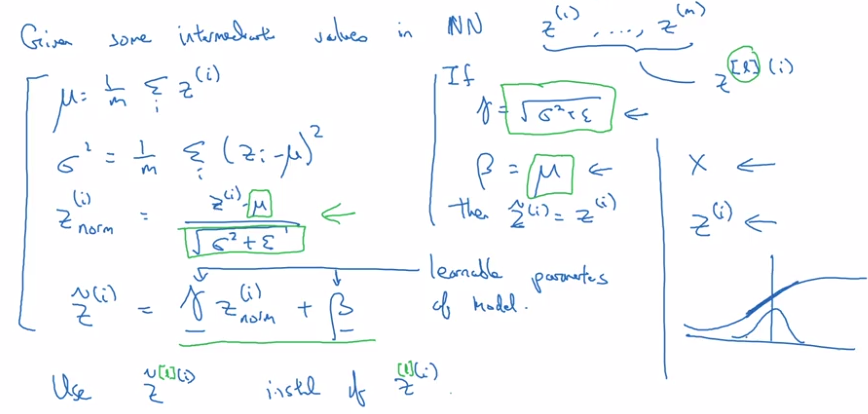 Given some intermediate values in NN z^(i), ..., z^(m)
z^[l](i)
μ = 1/m Σ_i z^(i)
σ² = 1/m Σ_i (z_i - μ)²
z^(i)_norm = (z^(i) - μ) / √(σ² + ε)
z̃^(i) = γ z^(i)_norm + β
learnable parameters
of model.
If
γ = √(σ² + ε) ←
β = μ ←
then z̃^(i) = z^(i)
X ←
z^(i) ←
Use z̃^[l](i) instead of z^[l](i).